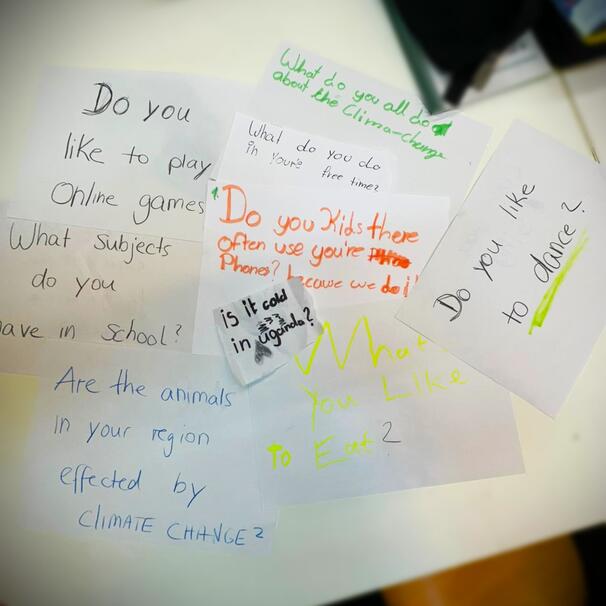 What do you all do
about the Clima-Change
Do you
like to play
Online games
What do you do
in youre free time?
1.
Do you Kids there
often use you're
Phones? because we do i
Do you like
to dance?
What subjects
do you
ave in school?
is it cold
in uganda?
What
you Like
To Eat?
Are the animals
in your region
effected by
CLIMATE CHANGE?